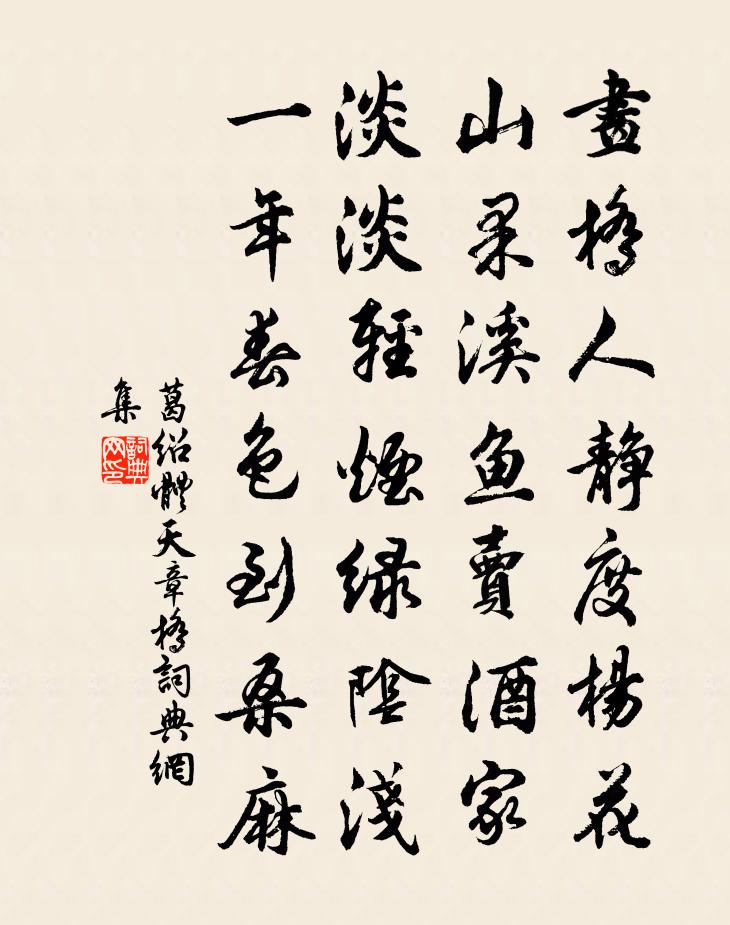 畫橋人靜度楊花
山果溪魚賣酒家
淡淡輕煙绿陰淺
一年春色到桑麻
葛绍體天章橋詞典網
集
詞典網印